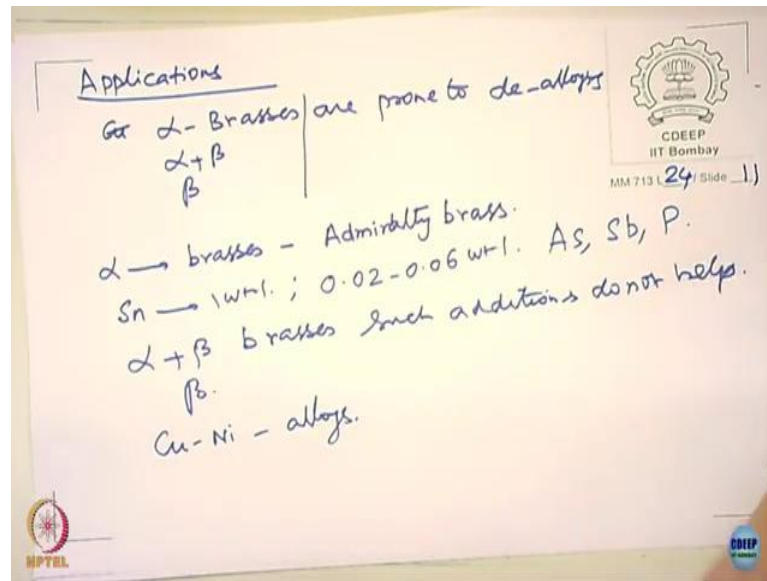 Applications
α- Brasses are prone to de-alloys
α+β
β
CDEEP
IIT Bombay
MM 713 L 24 / Slide 11
α → brasses - Admiralty brass.
Sn → 1wt%. ; 0.02-0.06 wt%. As, Sb, P.
α + β brasses such additions do not help.
β.
Cu-Ni - alloys.
NPTEL
CDEEP